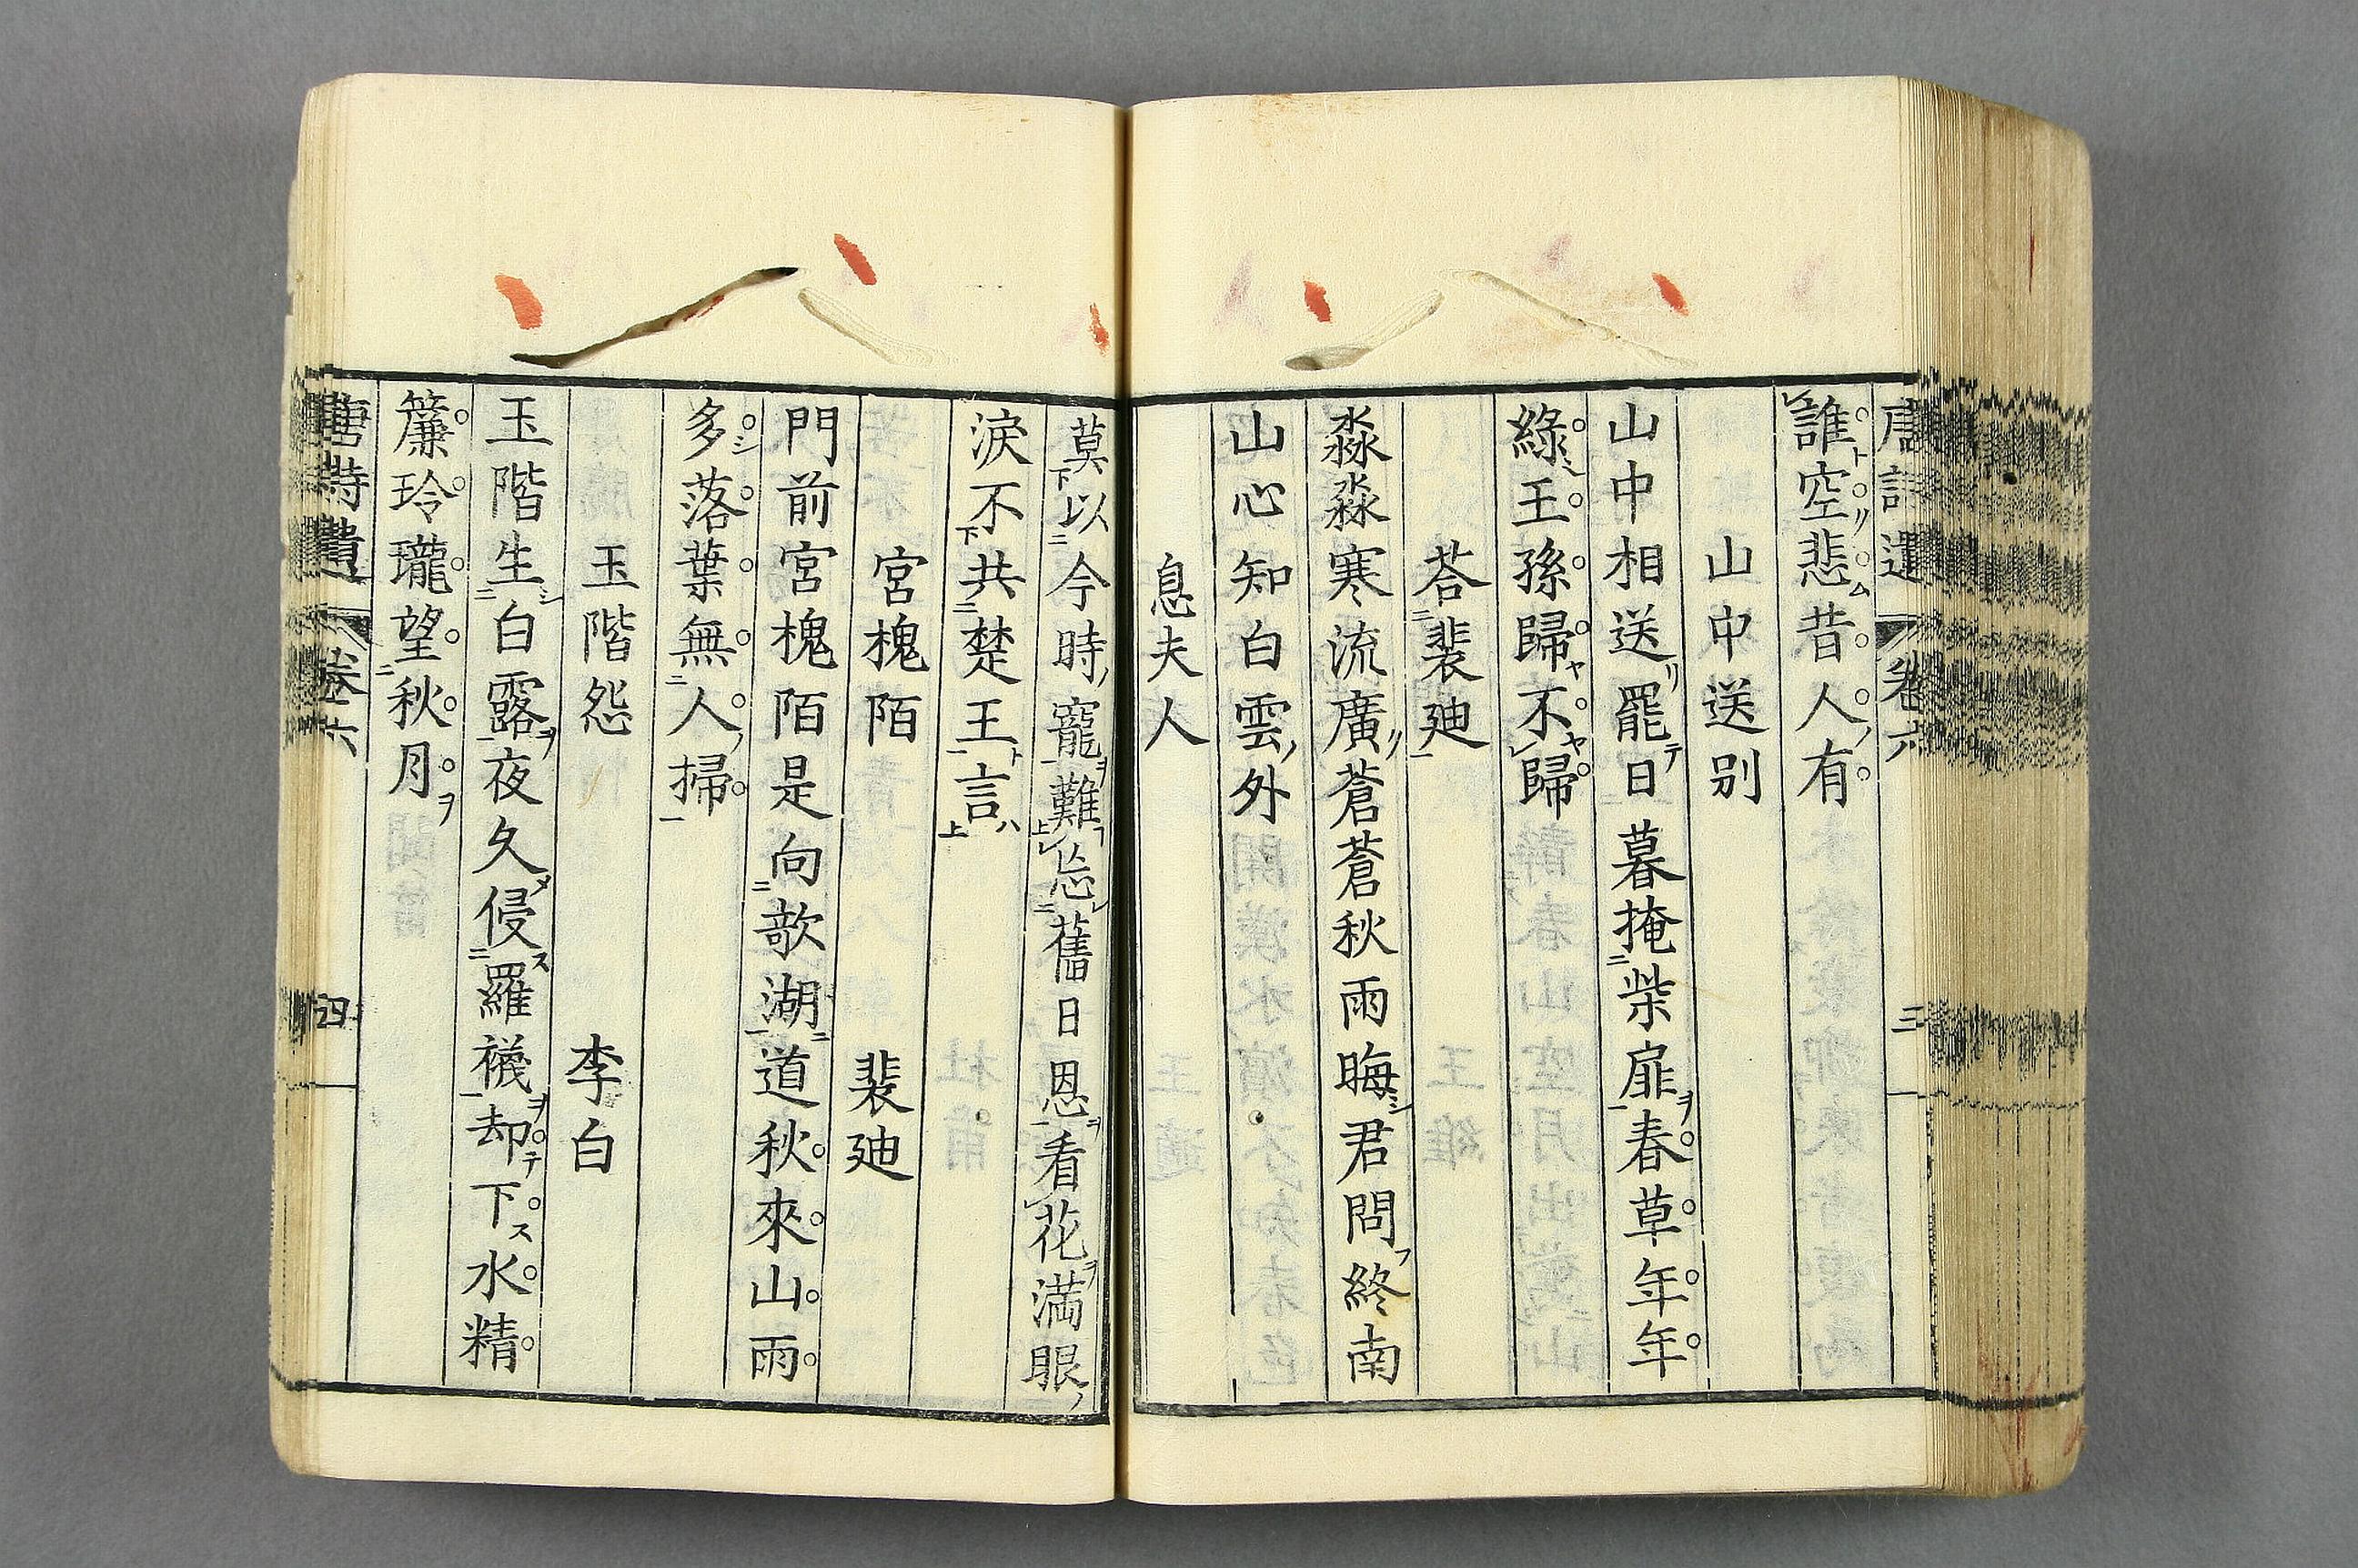 唐詩選 卷六 三
誰空悲昔人有
山中送別
山中相送罷日暮掩柴扉春草年年
綠王孫歸不歸
荅裴迪
淼淼寒流廣蒼蒼秋雨晦君問終南
山心知白雲外
息夫人
莫以今時寵難忘舊日恩看花満眼
淚不共楚王言
宮槐陌 裴迪
門前宮槐陌是向欹湖道秋來山雨
多落葉無人掃
玉階怨 李白
玉階生白露夜久侵羅襪却下水精
簾玲瓏望秋月
唐詩選 卷六 四